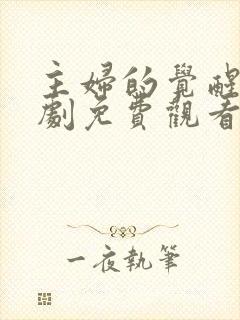 主婦的覺醒
劇免費觀看
一夜執筆